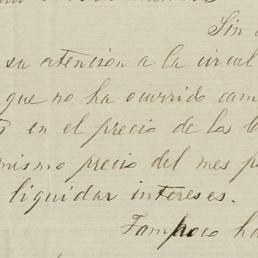 Sin
su atencion a la circul
que no ha ocurrido cam
en el precio de los
mismo precio del mes p
liquidar intereses.
Tampoco ha